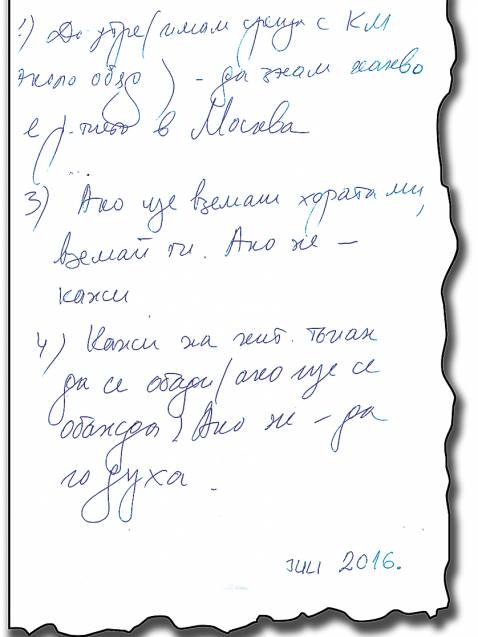 1) До утре (имам среща с КМ
около обяд) - да знам какво
е в Москва
3) Ако ще вземаш хората ми,
вземай ги. Ако не -
кажи
4) Кажи на
да се обади (ако ще се
обажда) Ако не - да
го духа.
юли 2016.